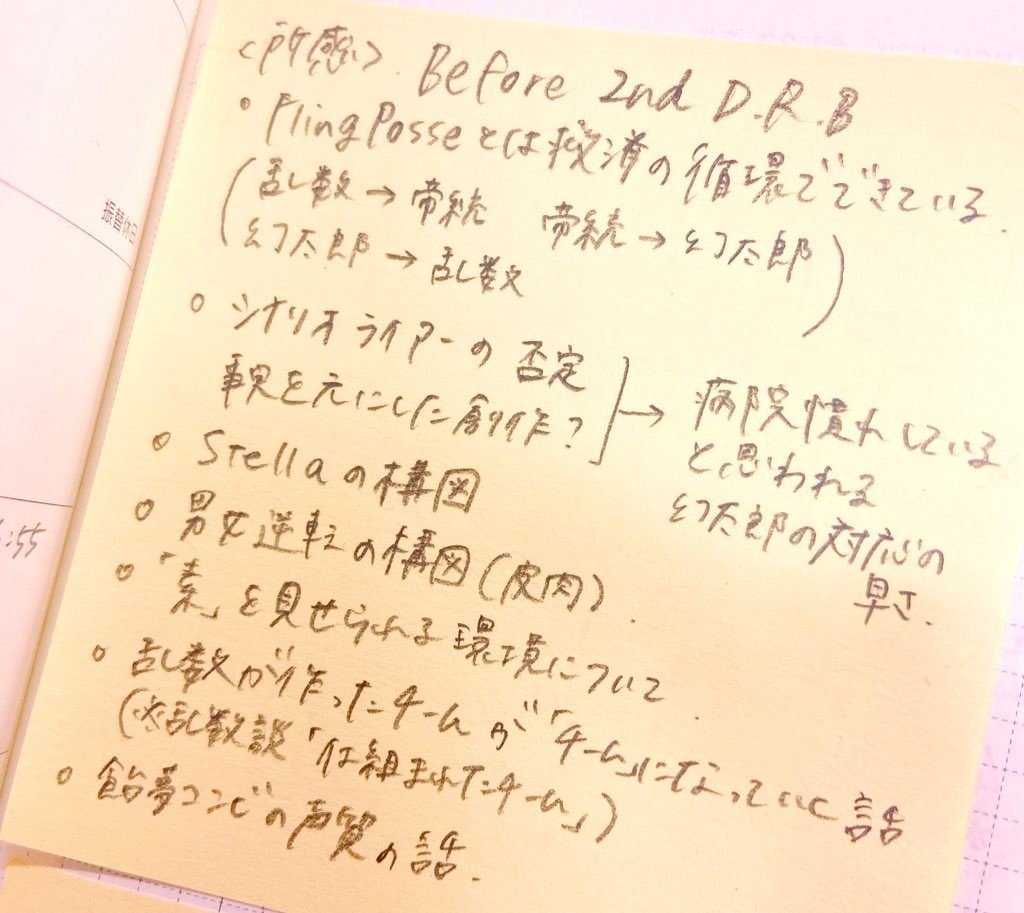 <所感> Before 2nd D.R.B
• Fling Posseとは救済の循環でできている.
(乱数→帝統 帝統→幻太郎
幻太郎→乱数)
○ シナリオライアーの否定
事実を元にした創作?
→ 病院慣れしている
と思われる
幻太郎の対応の
早さ.
○ Stellaの構図
○ 男女逆転の構図(皮肉)
○ 「素」を見せられる環境について
○ 乱数が作ったチームが「チーム」になっていく話
(※乱数談「仕組まれたチーム」)
○ 飴夢コンビの声質の話.
振替休日
:55